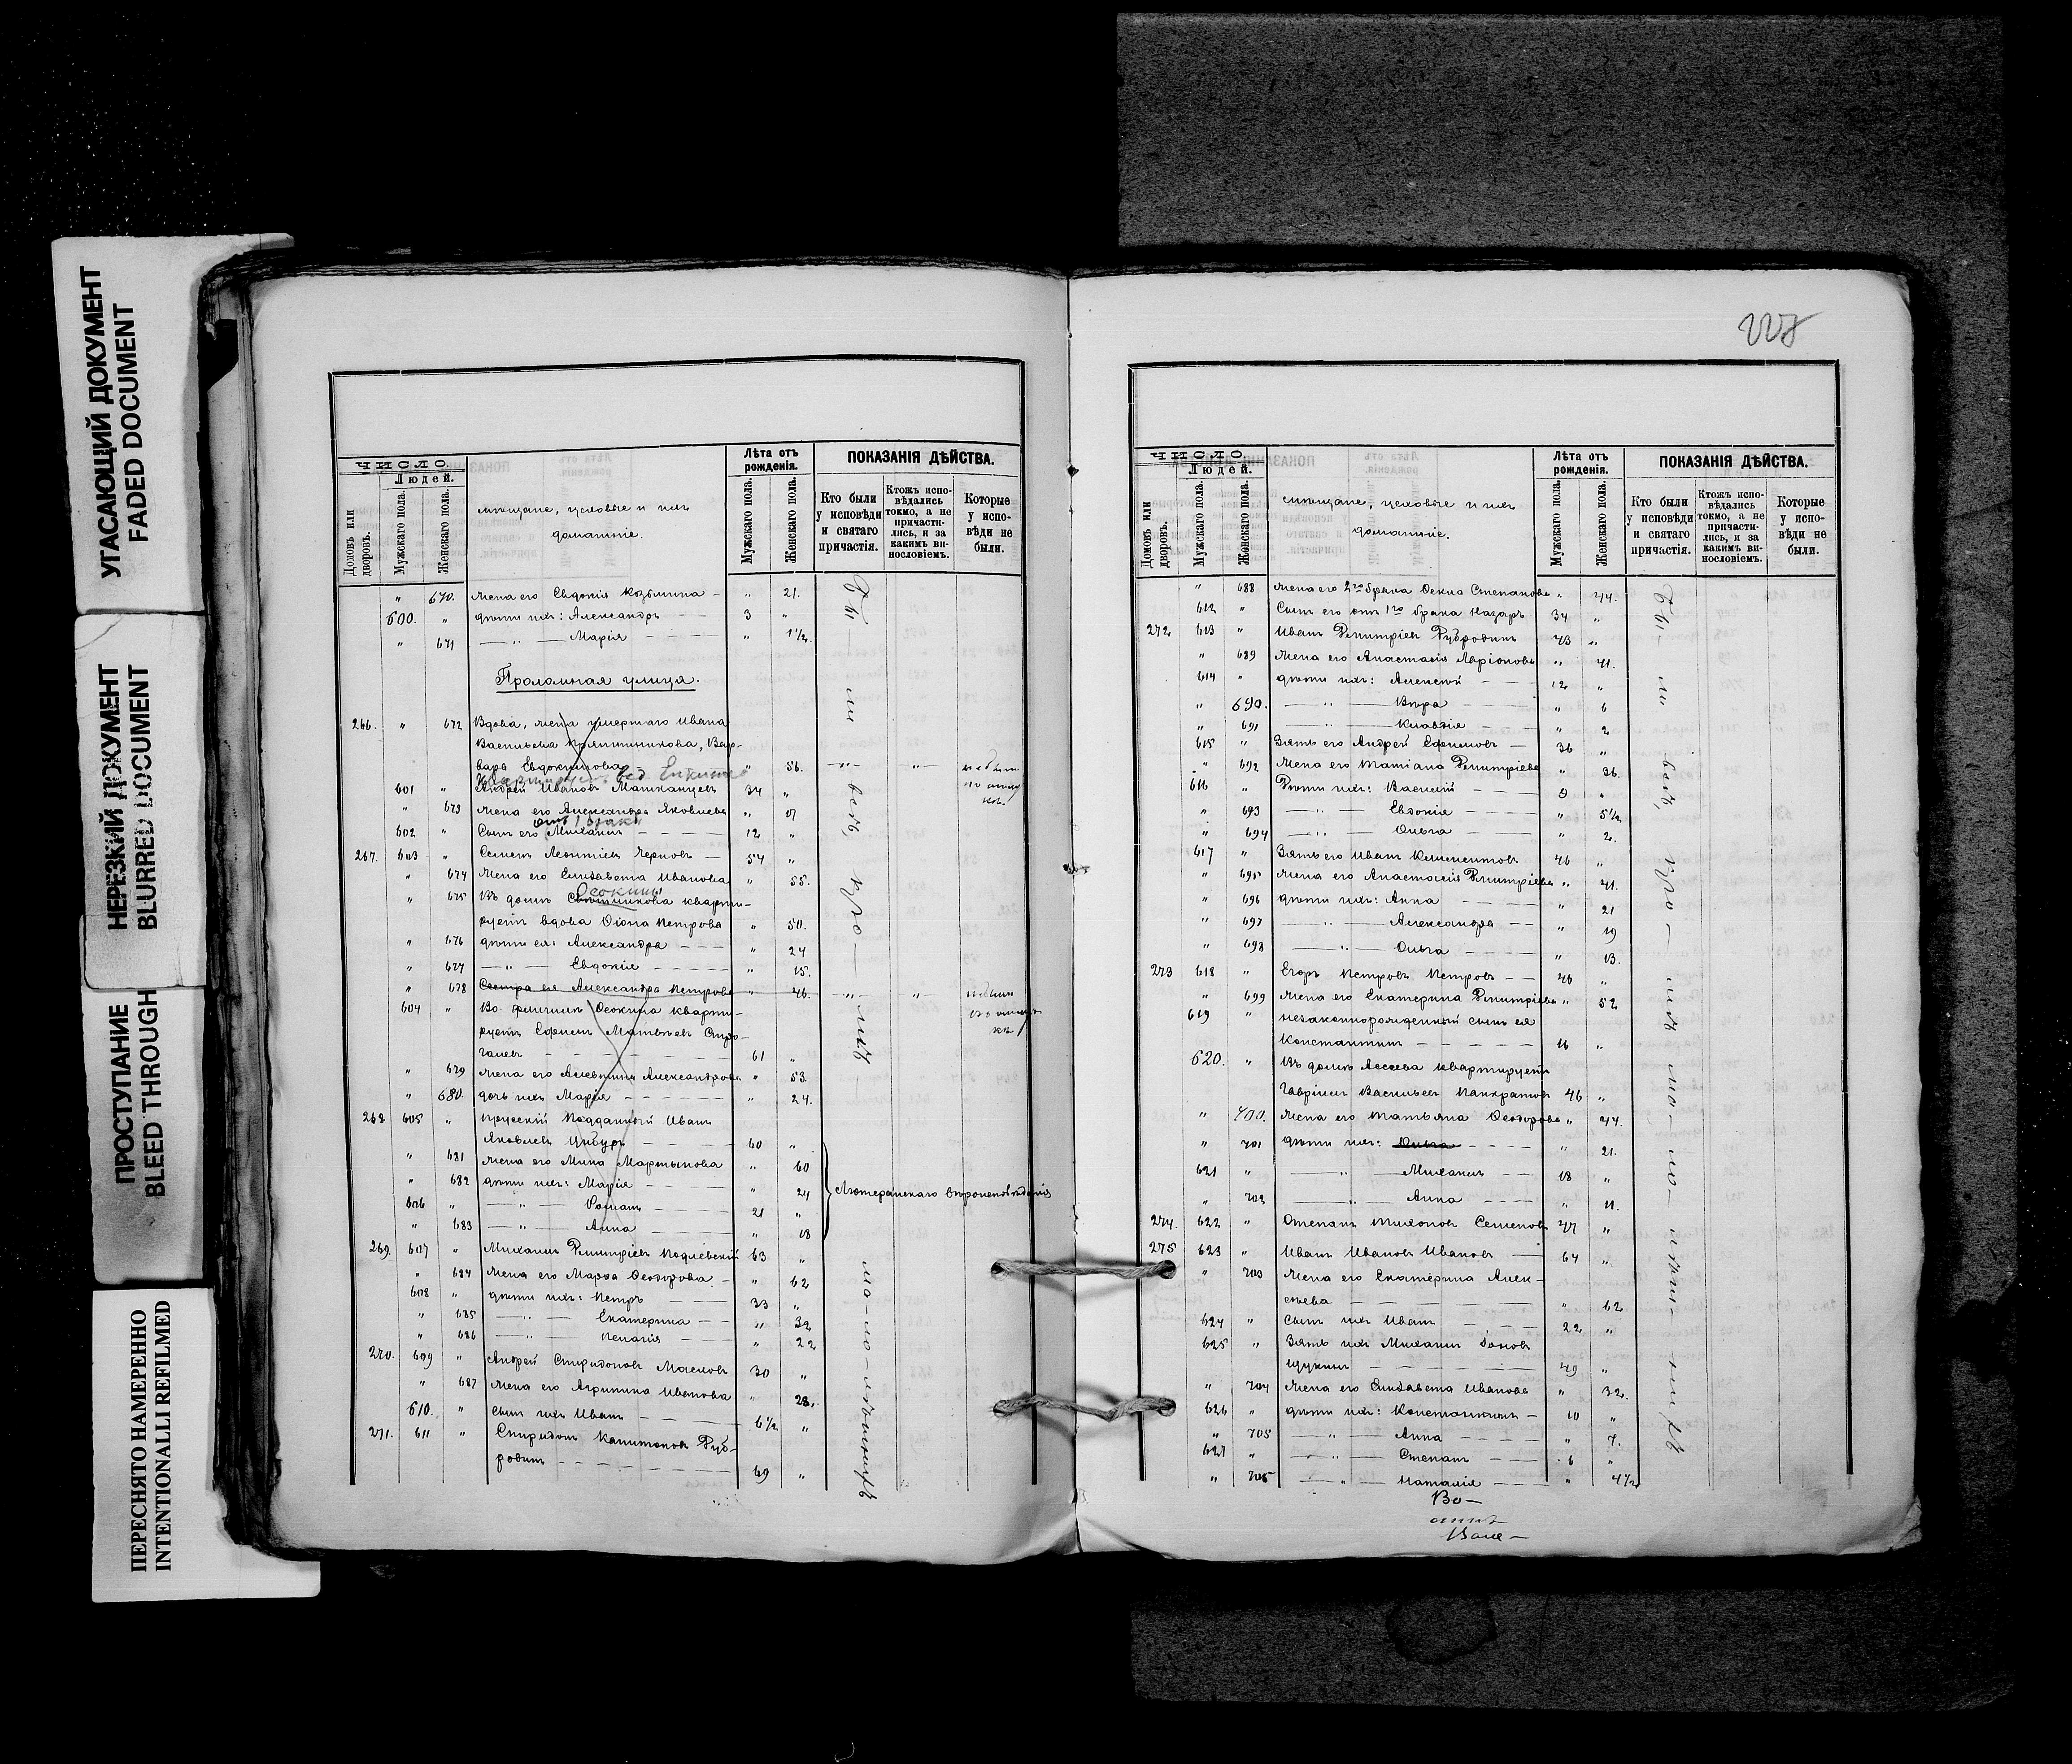 УГАСАЮЩИЙ ДОКУМЕНТ
FADED DOCUMENT
НЕРЕЗКИЙ ДОКУМЕНТ
BLURRED DOCUMENT
ПРОСТУПАНИЕ
BLEED THROUGH
ПЕРЕСНЯТО НАМЕРЕННО
INTENTIONALLI REFILMED
ЧИСЛО.
Людей.
Домовъ или дворовъ.
Мужскаго пола.
Женскаго пола.
мѣщане, цеховые и ихъ
домашніе.
Лѣта отъ рожденія.
Мужскаго пола.
Женскаго пола.
ПОКАЗАНІЯ ДѢЙСТВА.
Кто были у исповѣди и святаго причастія.
Ктожъ исповѣдались токмо, а не причастились, и за какимъ винословіемъ.
Которые у исповѣди не были.
" 670. Жена его Евдокія Козьмина — " 21.
600. " дѣти ихъ: Александръ — — 3 "
" 671 — " — Марія — — — " 1½
Проломная улица.
266. " 672 Вдова, жена умершаго Ивана
Васильева Прянишникова, Вар-
вара Евдокимова " 56. — " — " —
601 " Андрей Ивановъ 34 "
" 673 Жена его Александра Яковлева "
602 " Сынъ его Михаилъ — — — 12 "
267. 603 " Семенъ Леонтіевъ Черновъ — 54 "
" 674 Жена его Елизавета Иванова " 55.
Осокины
" 675 Въ домѣ кварти-
руетъ вдова Петрова " 50.
" 676 дѣти ея: Александра — — — " 24
" 677 — " — Евдокія — — — — " 15.
" 678 Сестра ея Александра Петрова " 46. — " — " —
604 " Во флигилѣ Осокина кварти-
руетъ Ефимъ Матвѣевъ
61 "
" 679 Жена его Александрова " 53
" 680. дочь ихъ Марія — — — — " 24.
268 605 " Прусскій Подданный Иванъ
Яковлевъ — — — 60 "
" 681 Жена его Мина Мартынова " 60
" 682 дѣти ихъ: Марія — — — " 24 Лютеранскаго вѣроисповѣданія
606 " — " — Романъ — — 21 "
" 683 — " — Анна — — " 18
269. 607 " Михаилъ Димитріевъ Подлевскій 63 "
" 684 Жена его Марѳа Ѳеодорова — " 62
608 " дѣти ихъ: Петръ — — 33 "
" 685 — " — Екатерина — — " 32
" 686 — " — Пелагія — — " 22
270. 609 " Андрей Спиридоновъ Масловъ 30 "
" 687 Жена его Агрипина Иванова " 28.
610. " Сынъ ихъ Иванъ — — — 6½ "
271. 611 " Спиридонъ Капитоновъ
69 "
ЧИСЛО.
Людей.
Домовъ или дворовъ.
Мужскаго пола.
Женскаго пола.
мѣщане, цеховые и ихъ
домашніе.
Лѣта отъ рожденія.
Мужскаго пола.
Женскаго пола.
ПОКАЗАНІЯ ДѢЙСТВА.
Кто были у исповѣди и святаго причастія.
Ктожъ исповѣдались токмо, а не причастились, и за какимъ винословіемъ.
Которые у исповѣди не были.
" 688 Жена его 2го брака Ѳекла Степанова " 44.
612 " Сынъ его отъ 1го брака Назаръ 34 "
272 613 " Иванъ Димитріевъ 43 "
" 689 Жена его Анастасія Ларіонова " 41.
614 " дѣти ихъ: Алексѣй — — 12 "
" 690. — " — Вѣра — — " 6
" 691 — " — Клавдія — — " 2
615 " Зять его Андрей Ефимовъ — 36 "
" 692 Жена его Татіана Димитріева " 36.
616 " Дѣти ихъ: Василій — — 9 "
" 693 — " — Евдокія — — " 5½
" 694 — " — Ольга — — — " 2.
617 " Зять его Иванъ Климентовъ 46 "
" 695 Жена его Анастасія Димитріева " 41.
" 696 дѣти ихъ: Анна — — — " 21
" 697 — " — Александра — — " 19
" 698 — " — Ольга — — — " 13.
273 618 " Егоръ Петровъ Петровъ — — 46 "
" 699 Жена его Екатерина Димитріева " 52
619 " незаконнорожденный сынъ ея
Константинъ — — — — 16 "
620. " Въ домѣ Ассеева квартируетъ
Гавріилъ Васильевъ Панкратовъ 46 "
" 700. Жена его Татьяна Ѳеодорова " 44.
" 701 дѣти ихъ: Ольга — — — " 21.
621 " — " — Михаилъ — — 18 "
" 702 — " — Анна — — — " 11.
274. 622 " Степанъ Тихоновъ Семеновъ 47 "
275 623 " Иванъ Ивановъ Ивановъ — 64 "
" 703 Жена его Екатерина Алек-
сѣева — — — — — " 62
624 " Сынъ ихъ Иванъ — — — 22 "
625 " Зять ихъ Михаилъ
Щукинъ — — — — 49 "
" 704 Жена его Елизавета Иванова " 32.
626 " дѣти ихъ: Константинъ — 10 "
" 705 — " — Анна — — — " 7.
627 " — " — Степанъ — — 6 "
" — " — Наталія — — — " 4½
Во—